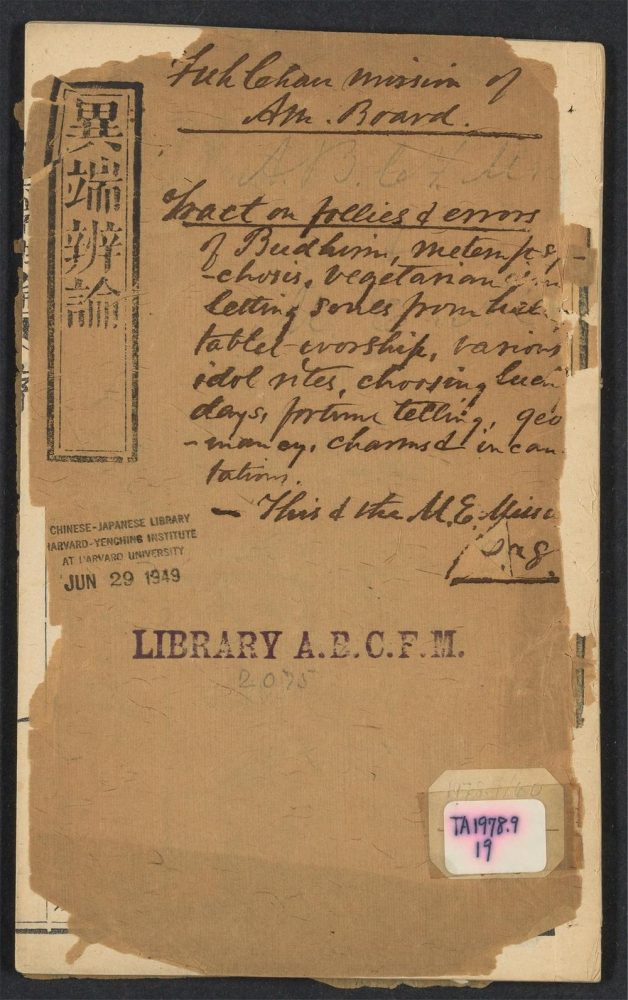 異端辨論
Fuh Chau mission of
Am. Board.
A. B. C. F. M.
Tract on follies & errors
of Budhism, metempsy
-chosis, vegetarian
letting souls from hell
tablet-worship, various
idol rites, choosing luck
days, fortune telling, geo
-mancy, charms & incan
tations.
— This & the M. E. Miss
CHINESE-JAPANESE LIBRARY
HARVARD-YENCHING INSTITUTE
AT HARVARD UNIVERSITY
JUN 29 1949
LIBRARY A.B.C.F.M.
2075
TA 1978.9
19